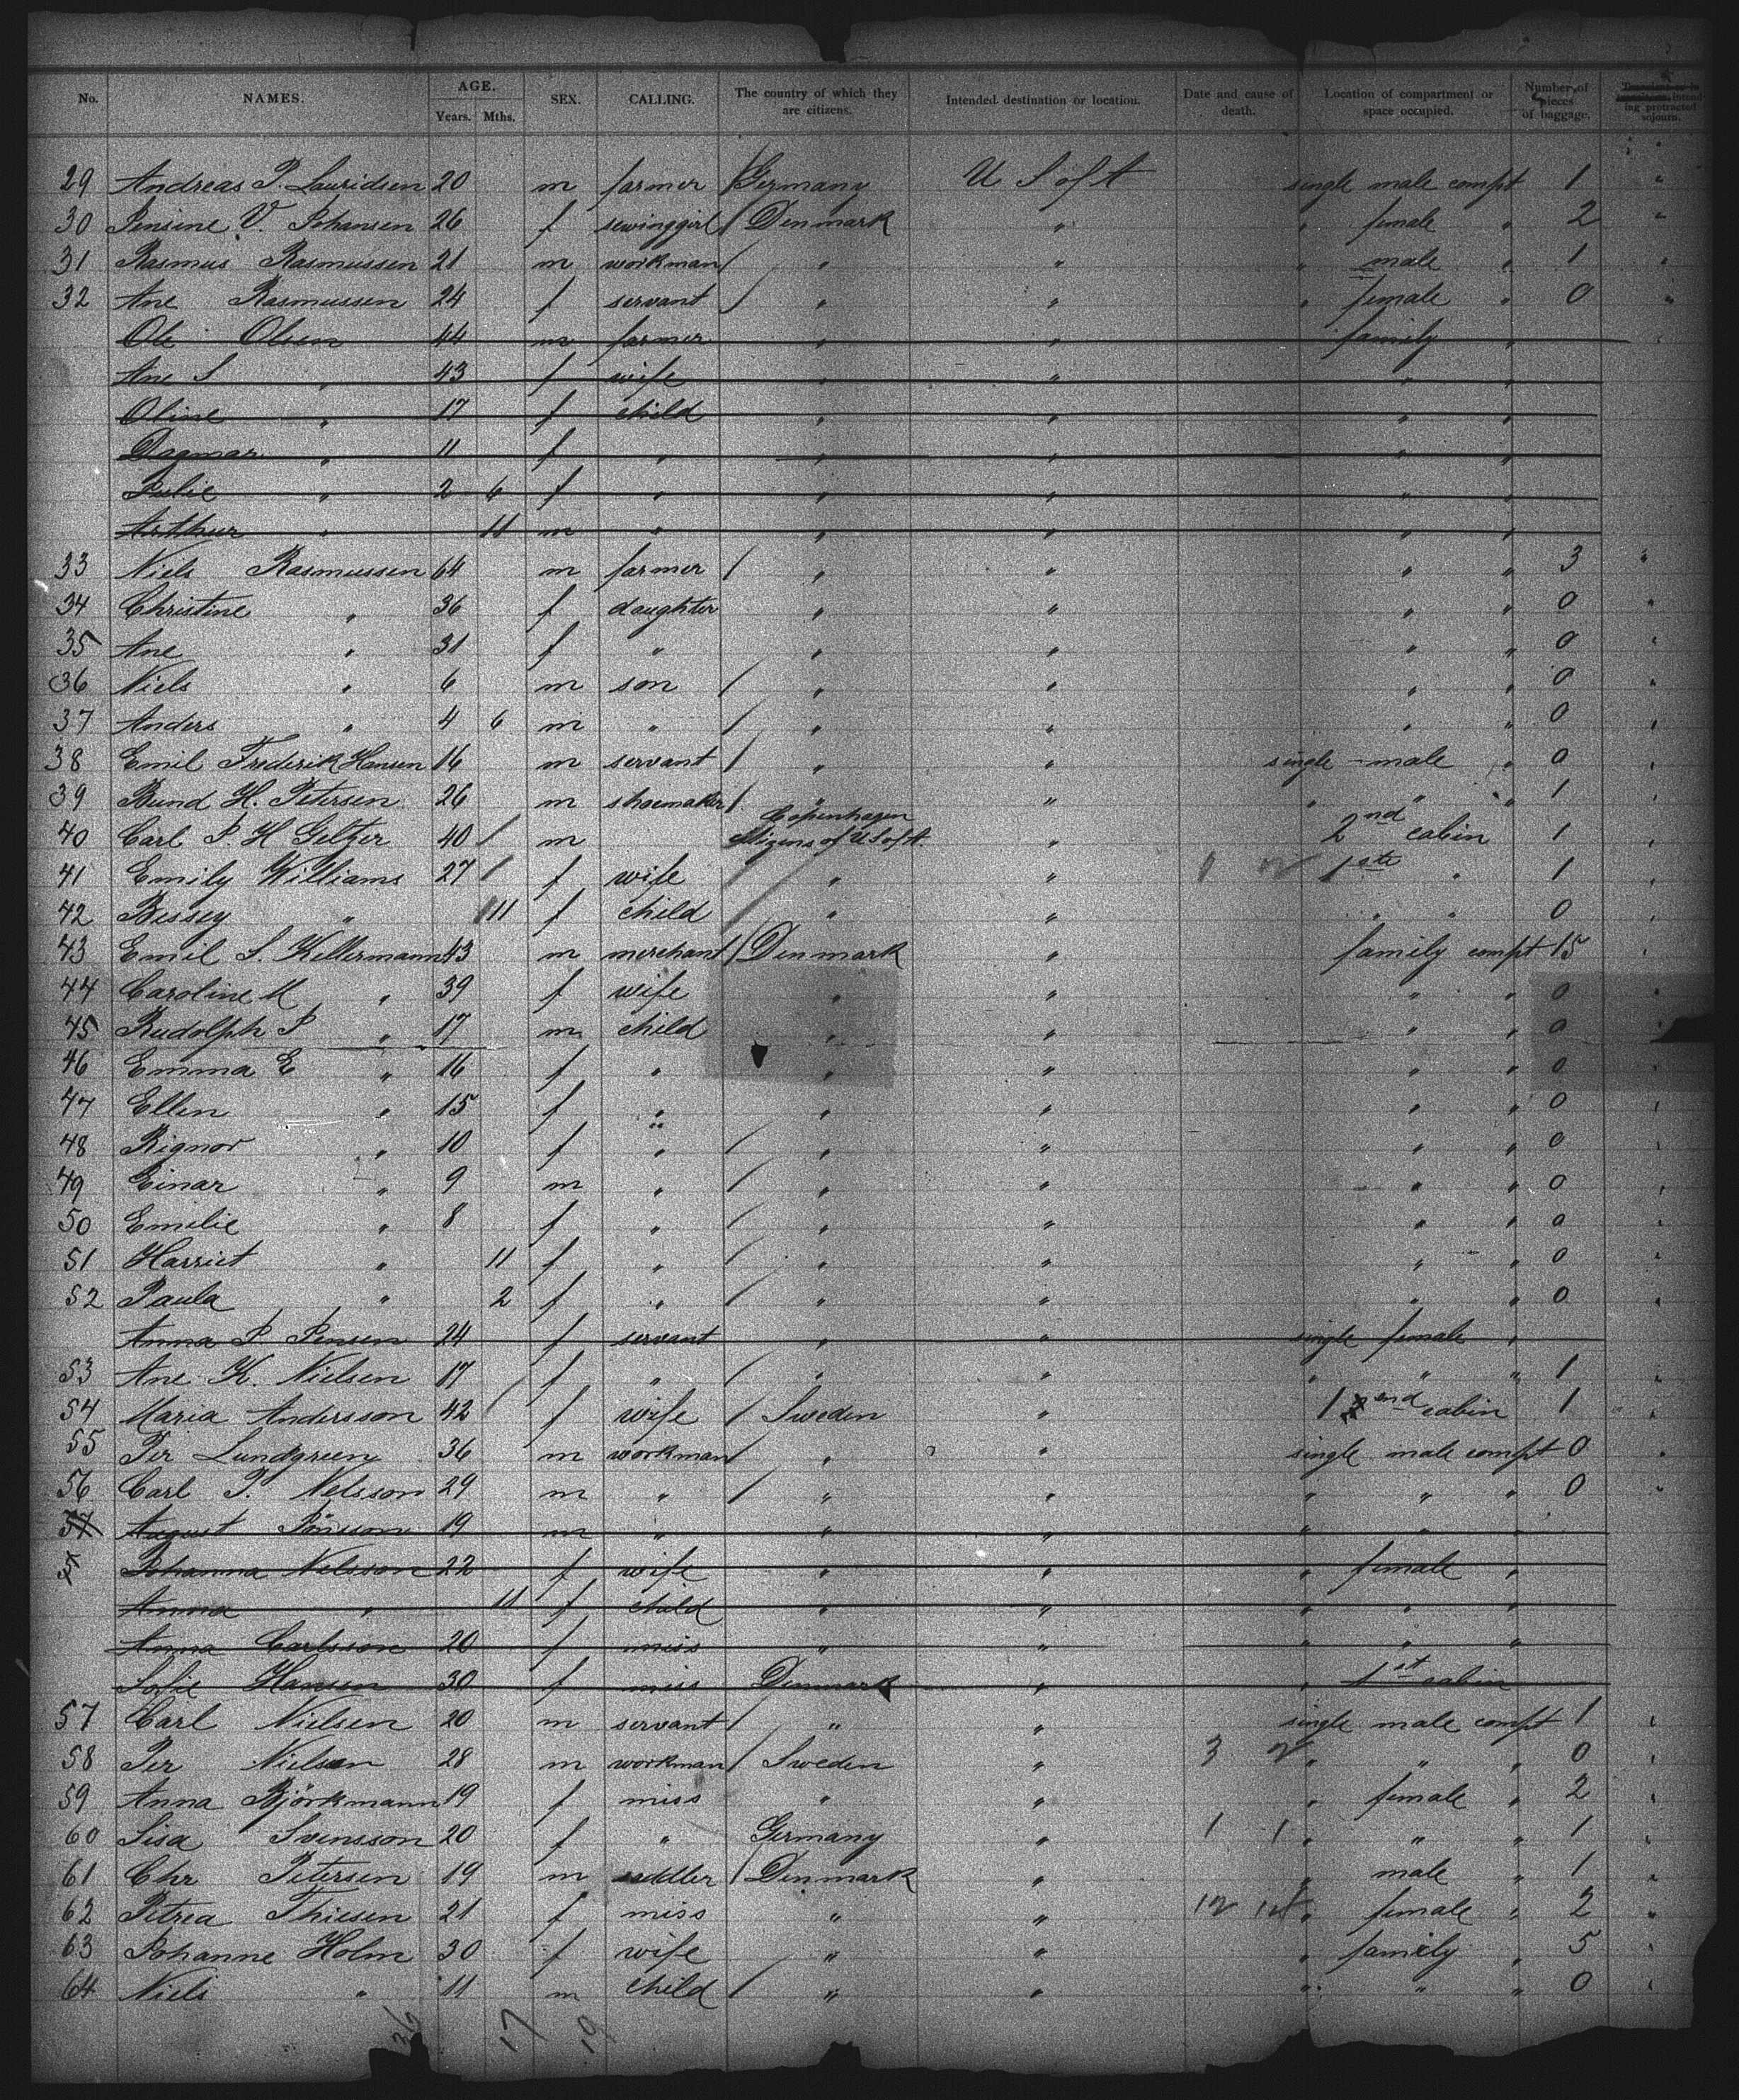 No. NAMES. AGE. Years. Mths. SEX. CALLING. The country of which they are citizens. Intended destination or location. Date and cause of death. Location of compartment or space occupied. Number of pieces of baggage. Intending protracted sojourn.
29 Andreas P. Lauridsen 20 m farmer / Germany U S of A single male compt 1 "
30 Jensine V. Johansen 26 f sewinggirl / Denmark " " female " 2 "
31 Rasmus Rasmussen 21 m workman / " " " male " 1 "
32 Ane Rasmussen 24 f servant / " " " female " 0 "
Ole Olsen 44 m farmer " " family "
Ane S " 43 f wife " " " "
Oline " 17 f child " " " "
Dagmar " 11 f " " " " "
Julie " 2 6 f " " " " "
Arthur " 11 m " " " " "
33 Niels Rasmussen 64 m farmer / " " " " 3 "
34 Christine " 36 f daughter " " " " 0 "
35 Ane " 31 f " " " " " 0 "
36 Niels " 6 m son / " " " " 0 "
37 Anders " 4 6 m " / " " " " 0 "
38 Emil Frederik Hansen 16 m servant / " " single - male " 0 "
39 Bund H. Petersen 26 m shoemaker / " " " " " 1 "
40 Carl P. H Geltzer 40 / m Copenhagen Citizens of U S of A. " 2nd cabin 1 "
41 Emily Williams 27 / f wife / " " 1ste " 1 "
42 Bessey " 11 f child / " " " " 0 "
43 Emil S. Kellermann 43 m merchant / Denmark " family compt 15 "
44 Caroline M " 39 f wife " " " " 0 "
45 Rudolph P " 17 m child " " " " 0 "
46 Emma E " 16 f " " " " " 0 "
47 Ellen " 15 f " " " " " 0 "
48 Rignor " 10 f " / " " " " 0 "
49 Einar " 9 m " / " " " " 0 "
50 Emilie " 8 f " / " " " " 0 "
51 Harriet " 11 f " / " " " " 0 "
52 Paula " 2 f " / " " " " 0 "
Anna P Jensen 24 f servant " " single female "
53 Ane K. Nielsen 17 f " / " " " " " 1 "
54 Maria Andersson 42 / f wife / Sweden " 1 cabin 1 "
55 Per Lundgreen 36 m workman / " " single male compt 0 "
56 Carl P. Nelsson 29 m " / " " " " " 0 "
57 August Jönsson 19 m " " " " " "
5 Johanna Nelsson 22 f wife " " " female "
Anna " 11 f child " " " " "
Anna Carlsson 20 f miss " " " " "
Sofie Hansen 30 f miss Denmark " " 1st cabin
57 Carl Nielsen 20 m servant / " " single male compt 1 "
58 Per Nielsen 28 m workman / Sweden " 3 2 " " " 0 "
59 Anna Björkmann 19 f miss " " " female " 2 "
60 Lisa Svensson 20 f " Germany " 1 1 " " " 1 "
61 Chr Petersen 19 m saddler / Denmark " " male " 1 "
62 Petrea Thiesen 21 f miss " " 12 " female " 2 "
63 Johanne Holm 30 f wife " " " family " 5 "
64 Niels " 11 m child / " " " " " 0 "
36 17 19